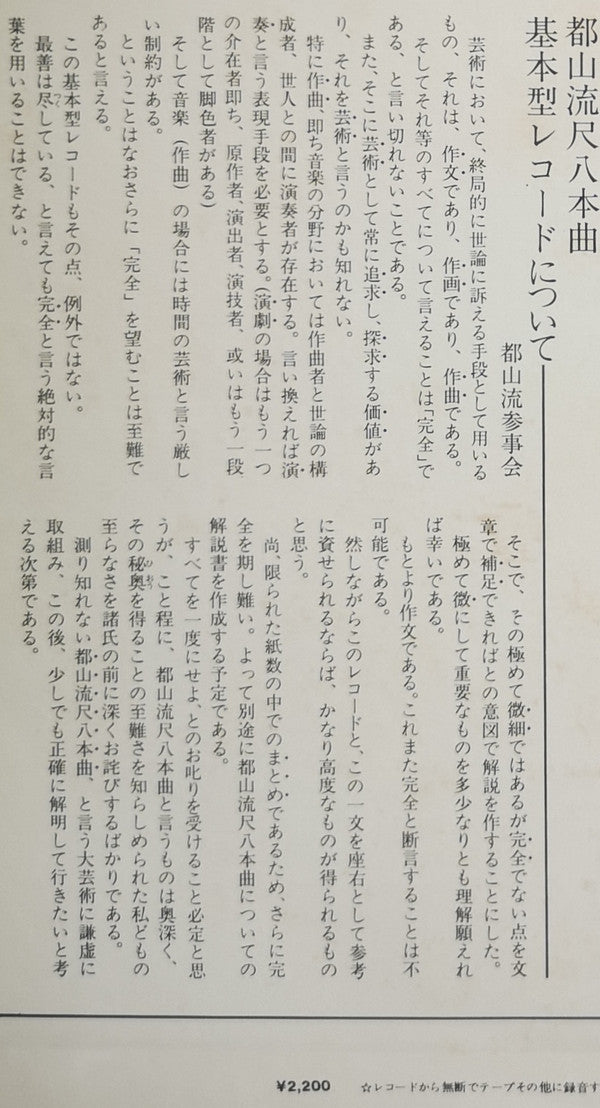 都山流尺八本曲
基本型レコードについて
都山流参事会
芸術において、終局的に世論に訴える手段として用いる
もの、それは、作文であり、作画であり、作曲である。
そしてそれ等のすべてについて言えることは「完全」で
ある、と言い切れないことである。
また、そこに芸術として常に追求し、探求する価値があ
り、それを芸術と言うのかも知れない。
特に作曲、即ち音楽の分野においては作曲者と世論の構
成者、世人との間に演奏者が存在する。言い換えれば演
奏と言う表現手段を必要とする。(演劇の場合はもう一つ
の介在者即ち、原作者、演出者、演技者、或いはもう一段
階として脚色者がある)
そして音楽(作曲)の場合には時間の芸術と言う厳し
い制約がある。
ということはなおさらに「完全」を望むことは至難で
あると言える。
この基本型レコードもその点、例外ではない。
最善は尽つくしている、と言えても完全と言う絶対的な言
葉を用いることはできない。
そこで、その極めて微細ではあるが完全でない点を文
章で補足できればとの意図で解説を作することにした。
極めて微にして重要なものを多少なりとも理解願えれ
ば幸いである。
もとより作文である。これまた完全と断言することは不
可能である。
然しながらこのレコードと、この一文を座右として参考
に資せられるならば、かなり高度なものが得られるもの
と思う。
尚、限られた紙数の中でのまとめであるため、さらに完
全を期し難い。よって別途に都山流尺八本曲についての
解説書を作成する予定である。
すべてを一度にせよ、とのお叱りを受けること必定と思
うが、こと程に、都山流尺八本曲と言うものは奥深く、
その秘奥ひおうを得ることの至難さを知らしめられた私どもの
至らなさを諸氏の前に深くお詫びするばかりである。
測り知れない都山流尺八本曲、と言う大芸術に謙虚に
取組み、この後、少しでも正確に解明して行きたいと考
える次第である。
¥2,200
☆レコードから無断でテープその他に録音す